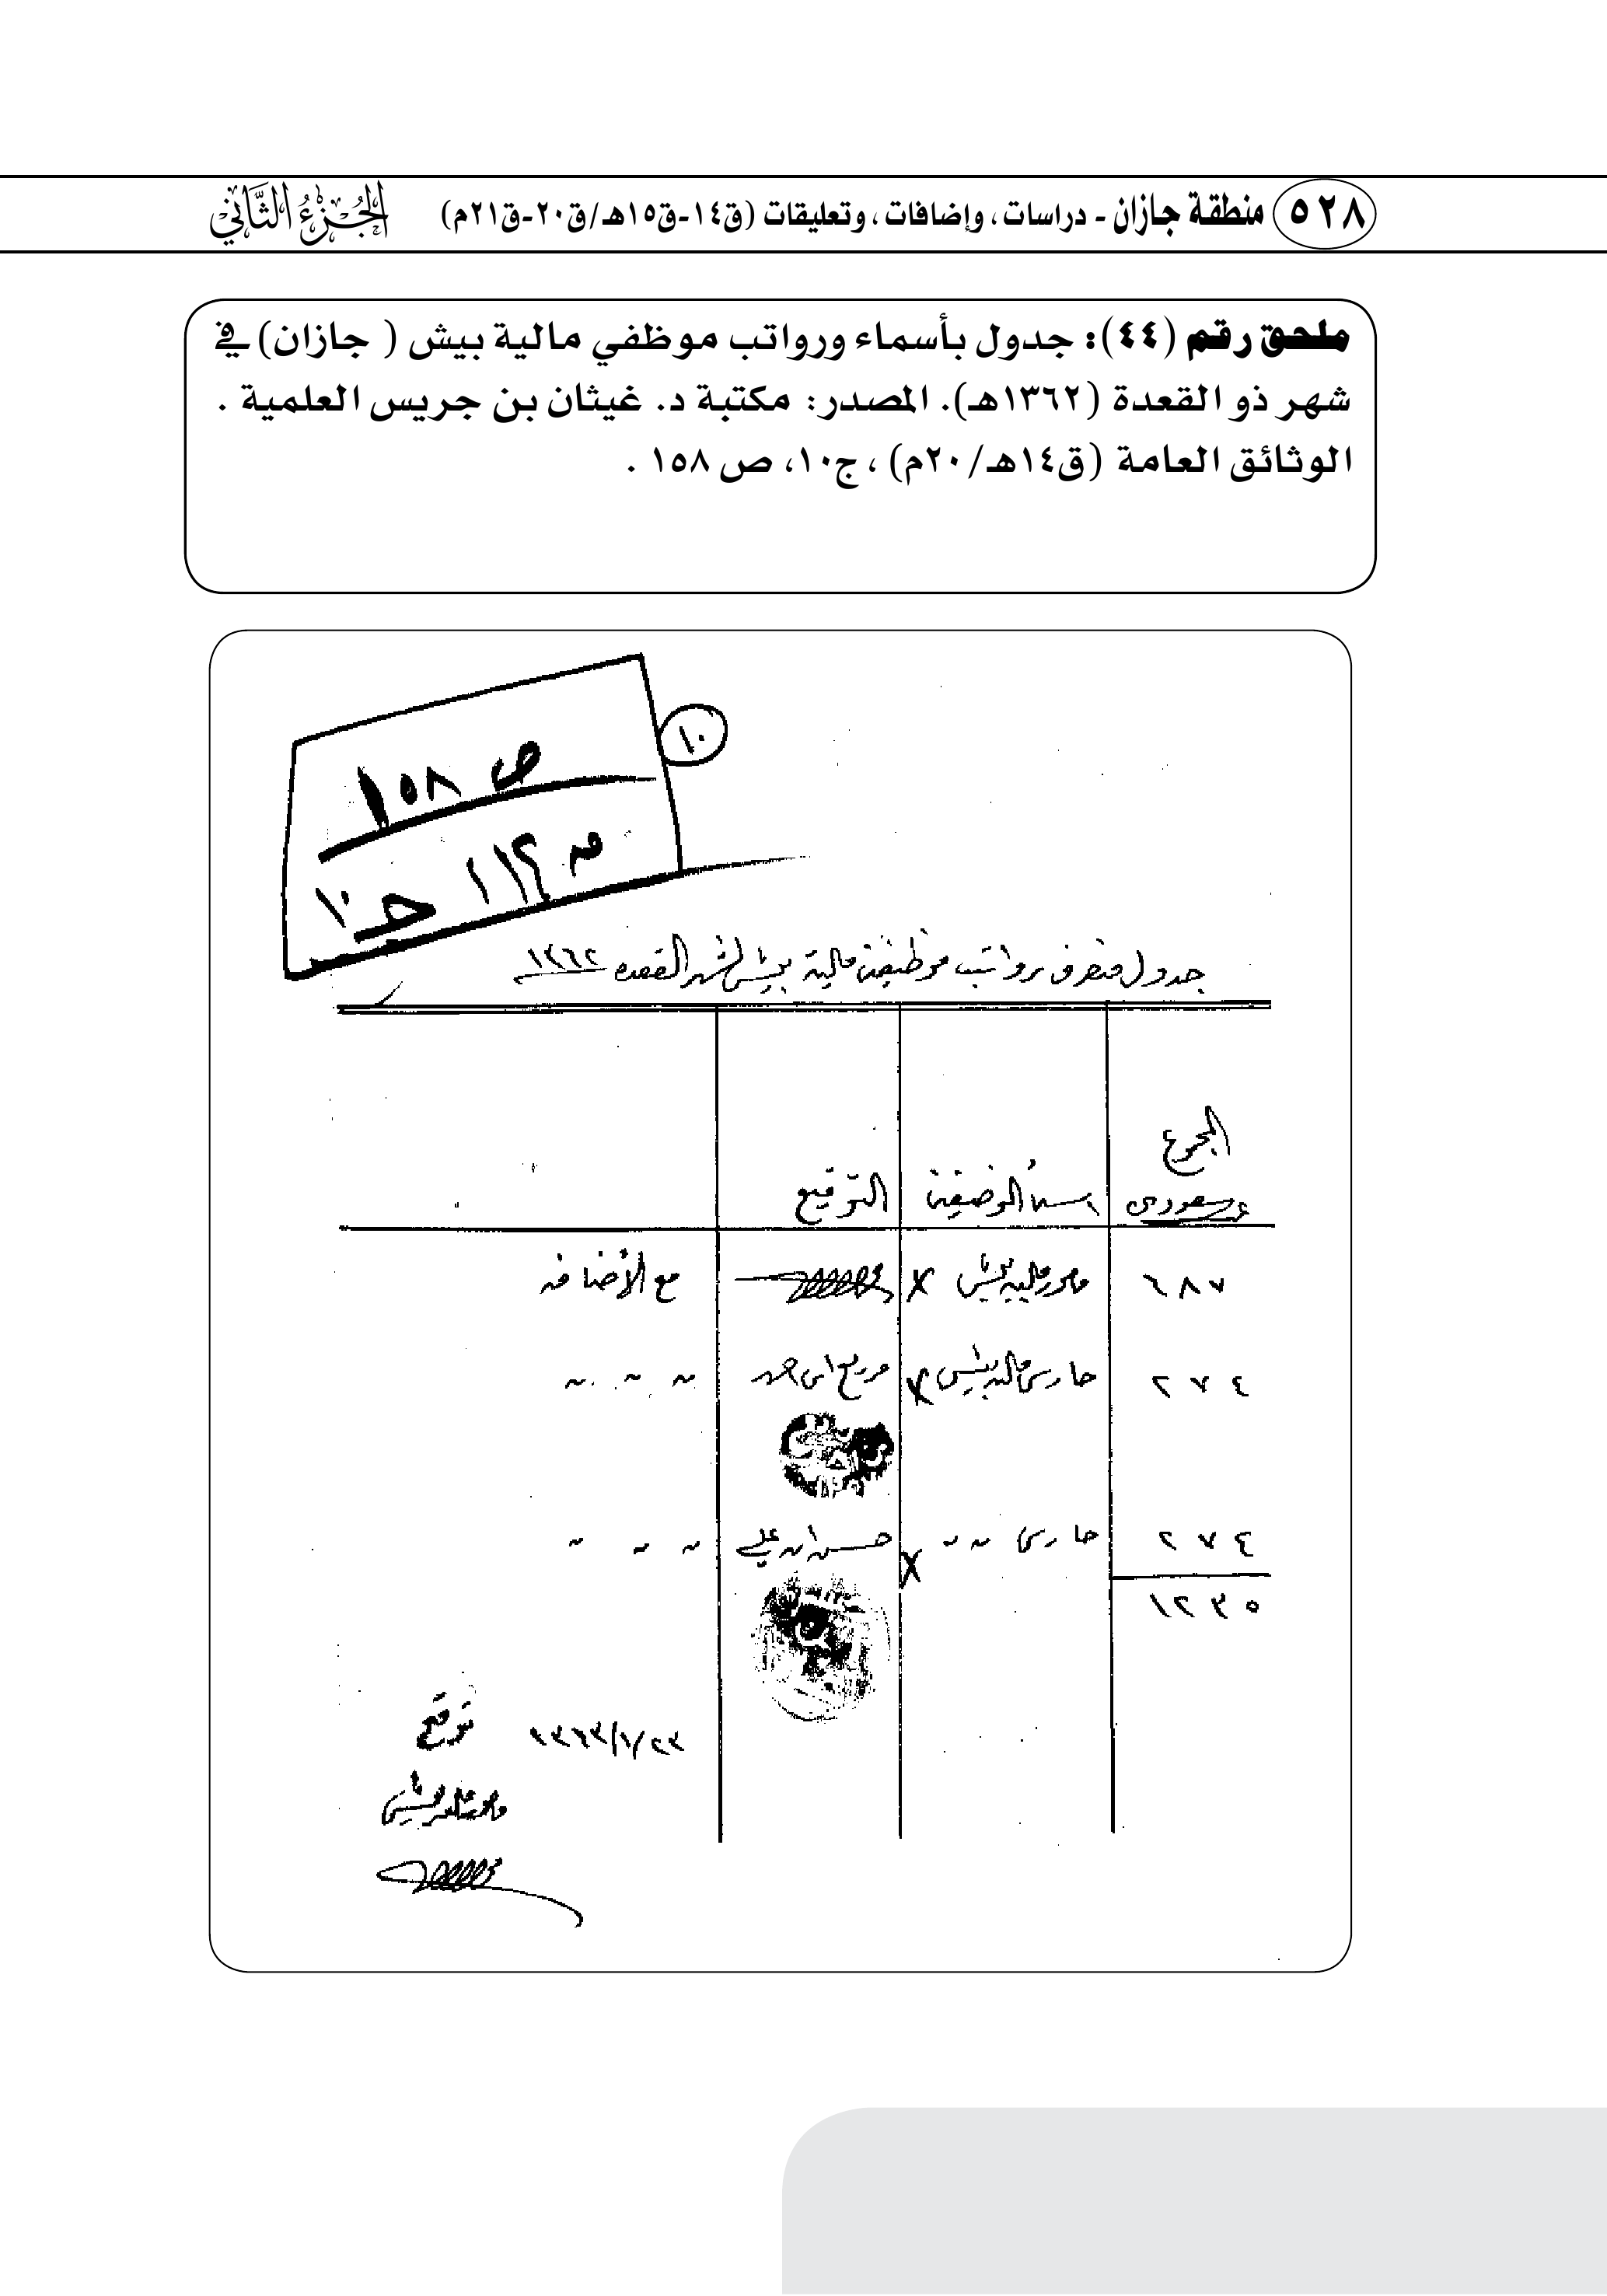 ٥٢٨ منطقة جازان - دراسات، وإضافات، وتعليقات (ق١٤-ق١٥هـ/ق٢٠-ق٢١م) الجزء الثاني
ملحق رقم (٤٤): جدول بأسماء ورواتب موظفي مالية بيش ( جازان) في
شهر ذو القعدة (١٣٦٢هـ). المصدر: مكتبة د. غيثان بن جريس العلمية .
الوثائق العامة (ق١٤هـ/٢٠م) ، ج١٠، ص ١٥٨ .
١٠
ص ١٥٨
جـ ١٠
جدول مفرق رواتب موظفين مالية بيش لشهر القعده ١٣٦٢
المجموع
سعودي اسماء الوضيفة التوقيع
٦٨٧ مامور مالية بيش X مع الأضافه
٢٧٤ حارس مالية بيش X " " "
٢٧٤ حارس " " X حسن ابن علي " " "
١٢٣٥
١٣٦٣/١/٢٣ توقيع
مامور مالية بيش